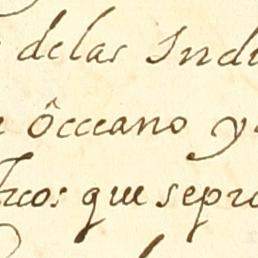 delas Indi
Ôcceano y
ticos que sepro